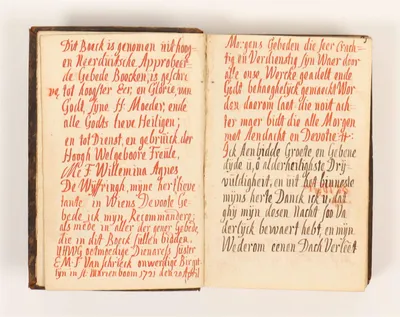 Dit Boeck is genomen uit hoog
en Neerduitsche Approbeer
de Gebede Boecken, is geschre
ve, tot hoogster Eer, en Glorie, van
Godt, Syne H Moeder, ende
alle Godts lieve Heiligen;
en tot Dienst, en gebruick der
Hoogh Welgeboore Freule,
Me F Willemina Agnes
De Wyttringh, myne hertlieve
tante in Wiens Devoote Ge
bede ick myn Recommandere,
als mede in aller der gener Gebede,
die in dit Boeck sullen bidden.
UHWG ootmoedige Dienaresse suster
E. M. F. Van Schrieck onwerdige Birgit
tyn in st. Marien boom 1721 den 20 April
Morgens Gebeden die seer Crach
tig en Verdienstig syn Waar door
alle onse Wercke geadelt ende
Godt behaaghelyck gemaeckt Wor
den daerom laat die noit ach
ter maer bidt die alle Morgen
met Aendacht en Devotie
Ick Aenbidde Groete en Gebene
dyde u, ô alderheiligste Dry
vuldigheyt, en uit het binnenste
myns herte Danck ick u, dat
ghy myn dosen Nacht soo Va
derlyck bewaert hebt, en myn
Wederom eenen Dach Verleet